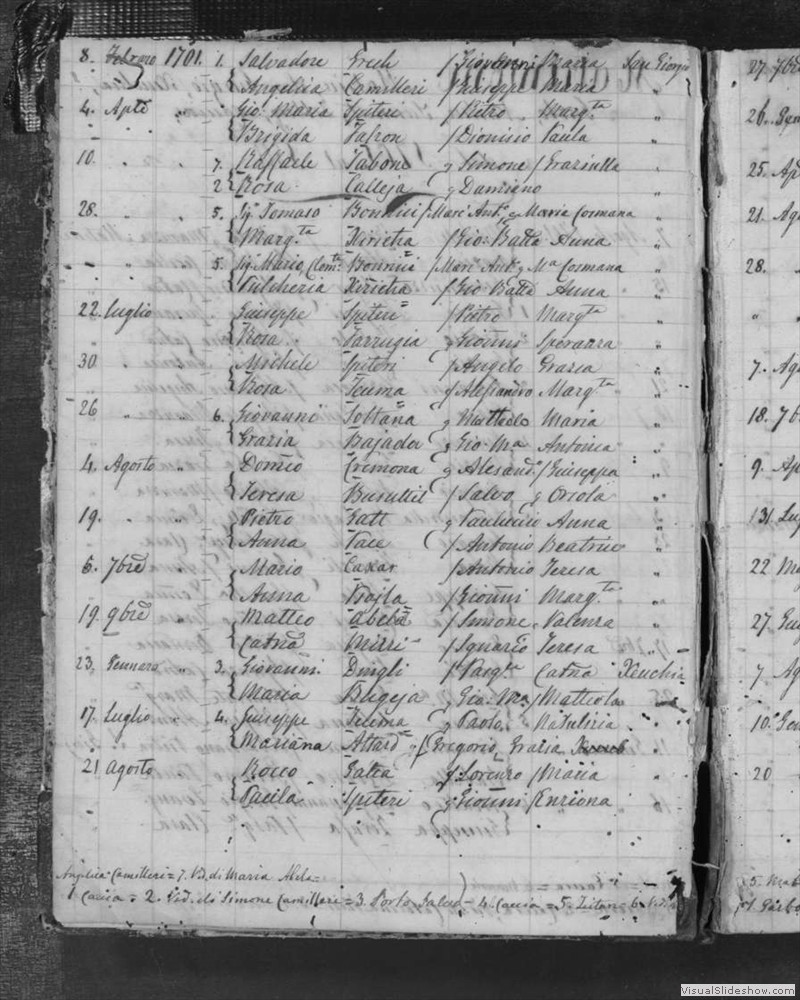 8. Febraro 1701. 1. Salvadore Grech / Giovanni Maria San Giorgio
Angelica Camilleri / Giuseppe Maria "
4. Aple " Gio: Maria Spiteri / Pietro Marg.ta "
Brigida / Dionisio Paula "
10. " " 7. Raffaele Tabone g Simone / Graziulla
2 Rosa Calleja g Damiano "
28. " " 5. Sig. Tomaso Bonnici / Marc' Ant.o g Maria Cosmana
Marg.ta / Gio: Batta Anna "
" " 5. Sig. Mario Bonnici / Marc' Ant.o g Ma Cosmana
Pulcheria / Gio Batta Anna "
22. Luglio " Giuseppe Spiteri / Pietro Marg.ta "
Rosa Farrugia g Gioanni Speranza "
30. " Michele Spiteri / Angelo Grazia "
Rosa Teuma g Alessandro Marg.ta "
26 " " 6. Giovanni Soltana g Mattiolo Maria "
Grazia Bajada g Gio: Ma Antonia "
4. Agosto " Domco Cremona g Alesand.o / Giuseppa "
Teresa Busuttil / Salvo g Orsola "
19. " " Pietro Gatt g Paulucio Anna "
Anna Pace / Antonio Beatrice "
6. 7bre " Mario Caxar / Antonio Teresa "
Anna / Gioanni Marg.ta "
19. 9bre " Matteo Abela / Simone Valenza "
Catna Mizzi / Ignazio Teresa "
23. Gennaro " 3. Giovanni Dingli / Pasq.le Catna
Maria Bugeja g Gio: Ma / Mattiola "
17. Luglio " 4. Giuseppe Teuma g Paolo Natalizia "
Mariana Attard / Gregorio Grazia "
21 Agosto Rocco Galea g Lorenzo / Maria "
Paula Spiteri g Gioanni / Enziona "
Angelica Camilleri = 7. Vid. di Maria Abela
1 Caccia = 2. Vid. di Simone Camilleri = 3. Porto Salvo = 4. Caccia = 5. Zeitun = 6.
27 7bre
26.
25. Ap
21. Ag
28. "
7. Ag
18. 7b
9. Ap
131. Lug
22 Ma
27.
7. Ag
10.
20
5.
VisualSlideshow.com